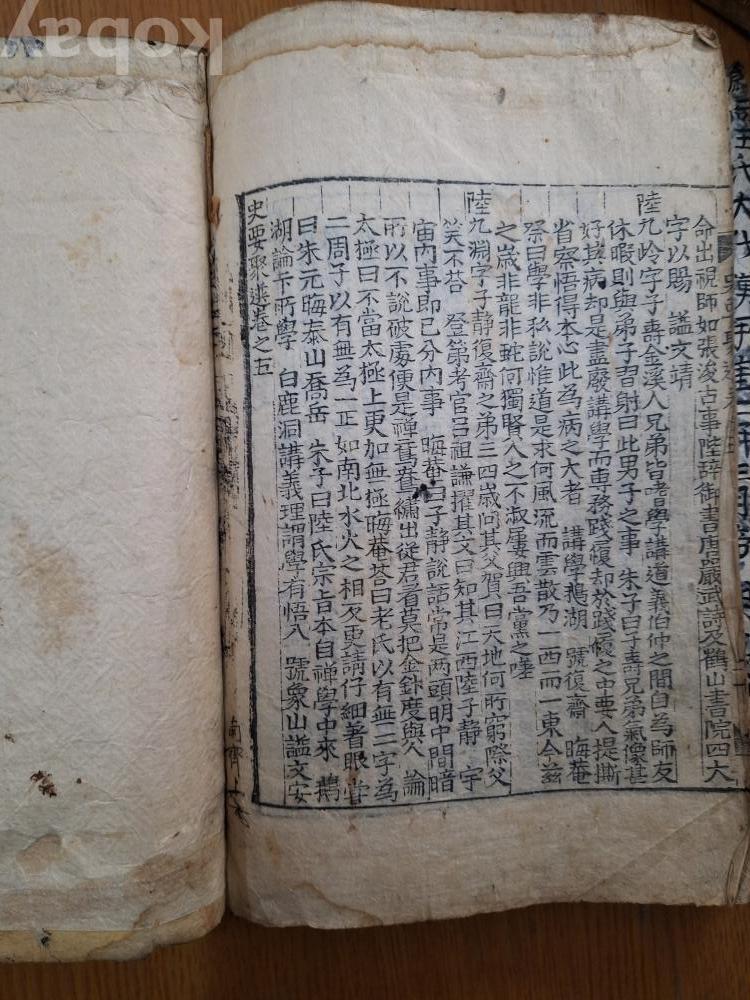 命出視師如張浚古事陛辞御書唐嚴武詩及鶴山書院四大
字以賜 謚文靖
陸九岭字子壽金溪人兄弟皆講學講道義伯仲之間自為師友
休暇則與弟子習射曰此男子之事 朱子曰子壽兄弟氣像甚
好其病却是盡廢講學而專務踐履却於踐履之中要人提撕
省察悟得本心此為病之大者 講學鵝湖 號復齋 晦菴
祭曰學非私說惟道是求何風流而雲散乃一西而一東今茲
之歲非龍非蛇何獨賢人之不淑屢興吾黨之嗟
陸九淵字子靜復齋之弟三四歲問其父賀曰天地何所窮際父
笑不荅 登第考官呂祖謙擢其文曰知其江西陸子靜 宇
宙內事即己分內事 晦菴曰子靜說話常是两頭明中間暗
所以不說破處便是禪鴛鴦繡出從君看莫把金針度與人 論
太極曰不當太極上更加無極晦菴荅曰老氏以有無二字為
二周子以有無為一正如南北水火之相反更請仔細着眼 嘗
曰朱元晦泰山喬岳 朱子曰陸氏宗旨本自禪學中來 鵝
湖論下所學 白鹿洞講義理謂學有悟入 號象山謚文安
史要聚選卷之五
kobay